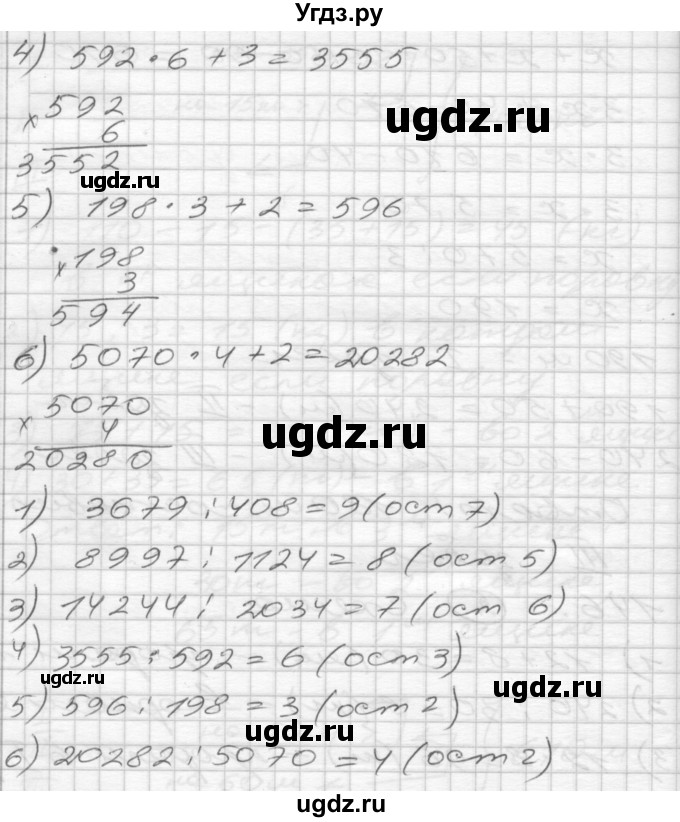 Угдз.ру
4) 592 · 6 + 3 = 3555
× 592
6
3552
ugdz.ru
ugdz.ru
5) 198 · 3 + 2 = 596
× 198
3
594
6) 5070 · 4 + 2 = 20282
× 5070
4
20280
ugdz.ru
1) 3679 : 408 = 9 (ост 7)
2) 8997 : 1124 = 8 (ост 5)
3) 14244 : 2034 = 7 (ост 6)
4) 3555 : 592 = 6 (ост 3)
ugdz.ru
ugdz.ru
5) 596 : 198 = 3 (ост 2)
ugdz.ru
6) 20282 : 5070 = 4 (ост 2)
ugdz.ru